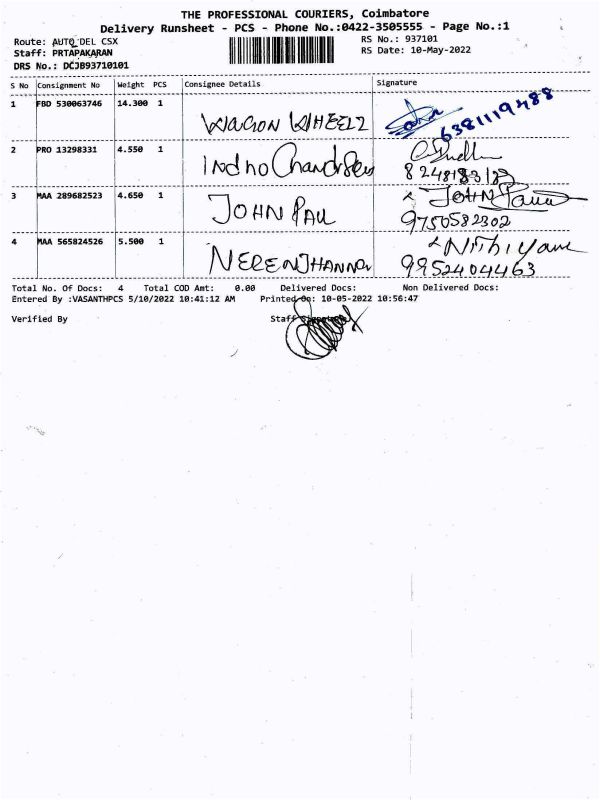 THE PROFESSIONAL COURIERS, Coimbatore
Delivery Runsheet - PCS - Phone No.:0422-3505555 - Page No.:1
Route: AUTO DEL CSX RS No.: 937101
Staff: PRTAPAKARAN RS Date: 10-May-2022
DRS No.: DCJB93710101
S No Consignment No Weight PCS Consignee Details Signature
1 FBD 530063746 14.300 1 WAGON WHEELZ 6381119488
2 PRO 13298331 4.550 1
8248183182
3 MAA 289682523 4.650 1 JOHN PAUL JOHN Paul
9750582302
4 MAA 565824526 5.500 1
9952404463
Total No. Of Docs: 4 Total COD Amt: 0.00 Delivered Docs: Non Delivered Docs:
Entered By :VASANTHPCS 5/10/2022 10:41:12 AM Printed On: 10-05-2022 10:56:47
Verified By Staff Signature